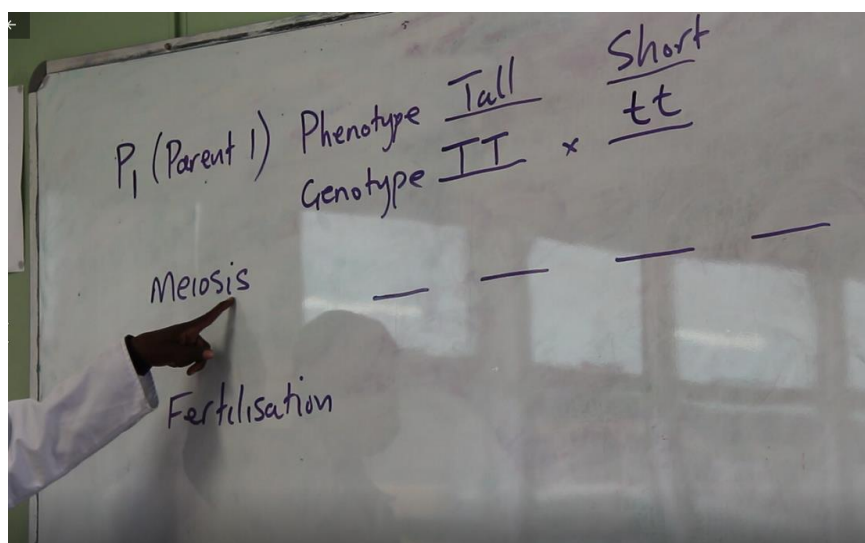 Short
P1 (Parent 1) Phenotype Tall
Genotype TT × tt
Meiosis
Fertilisation